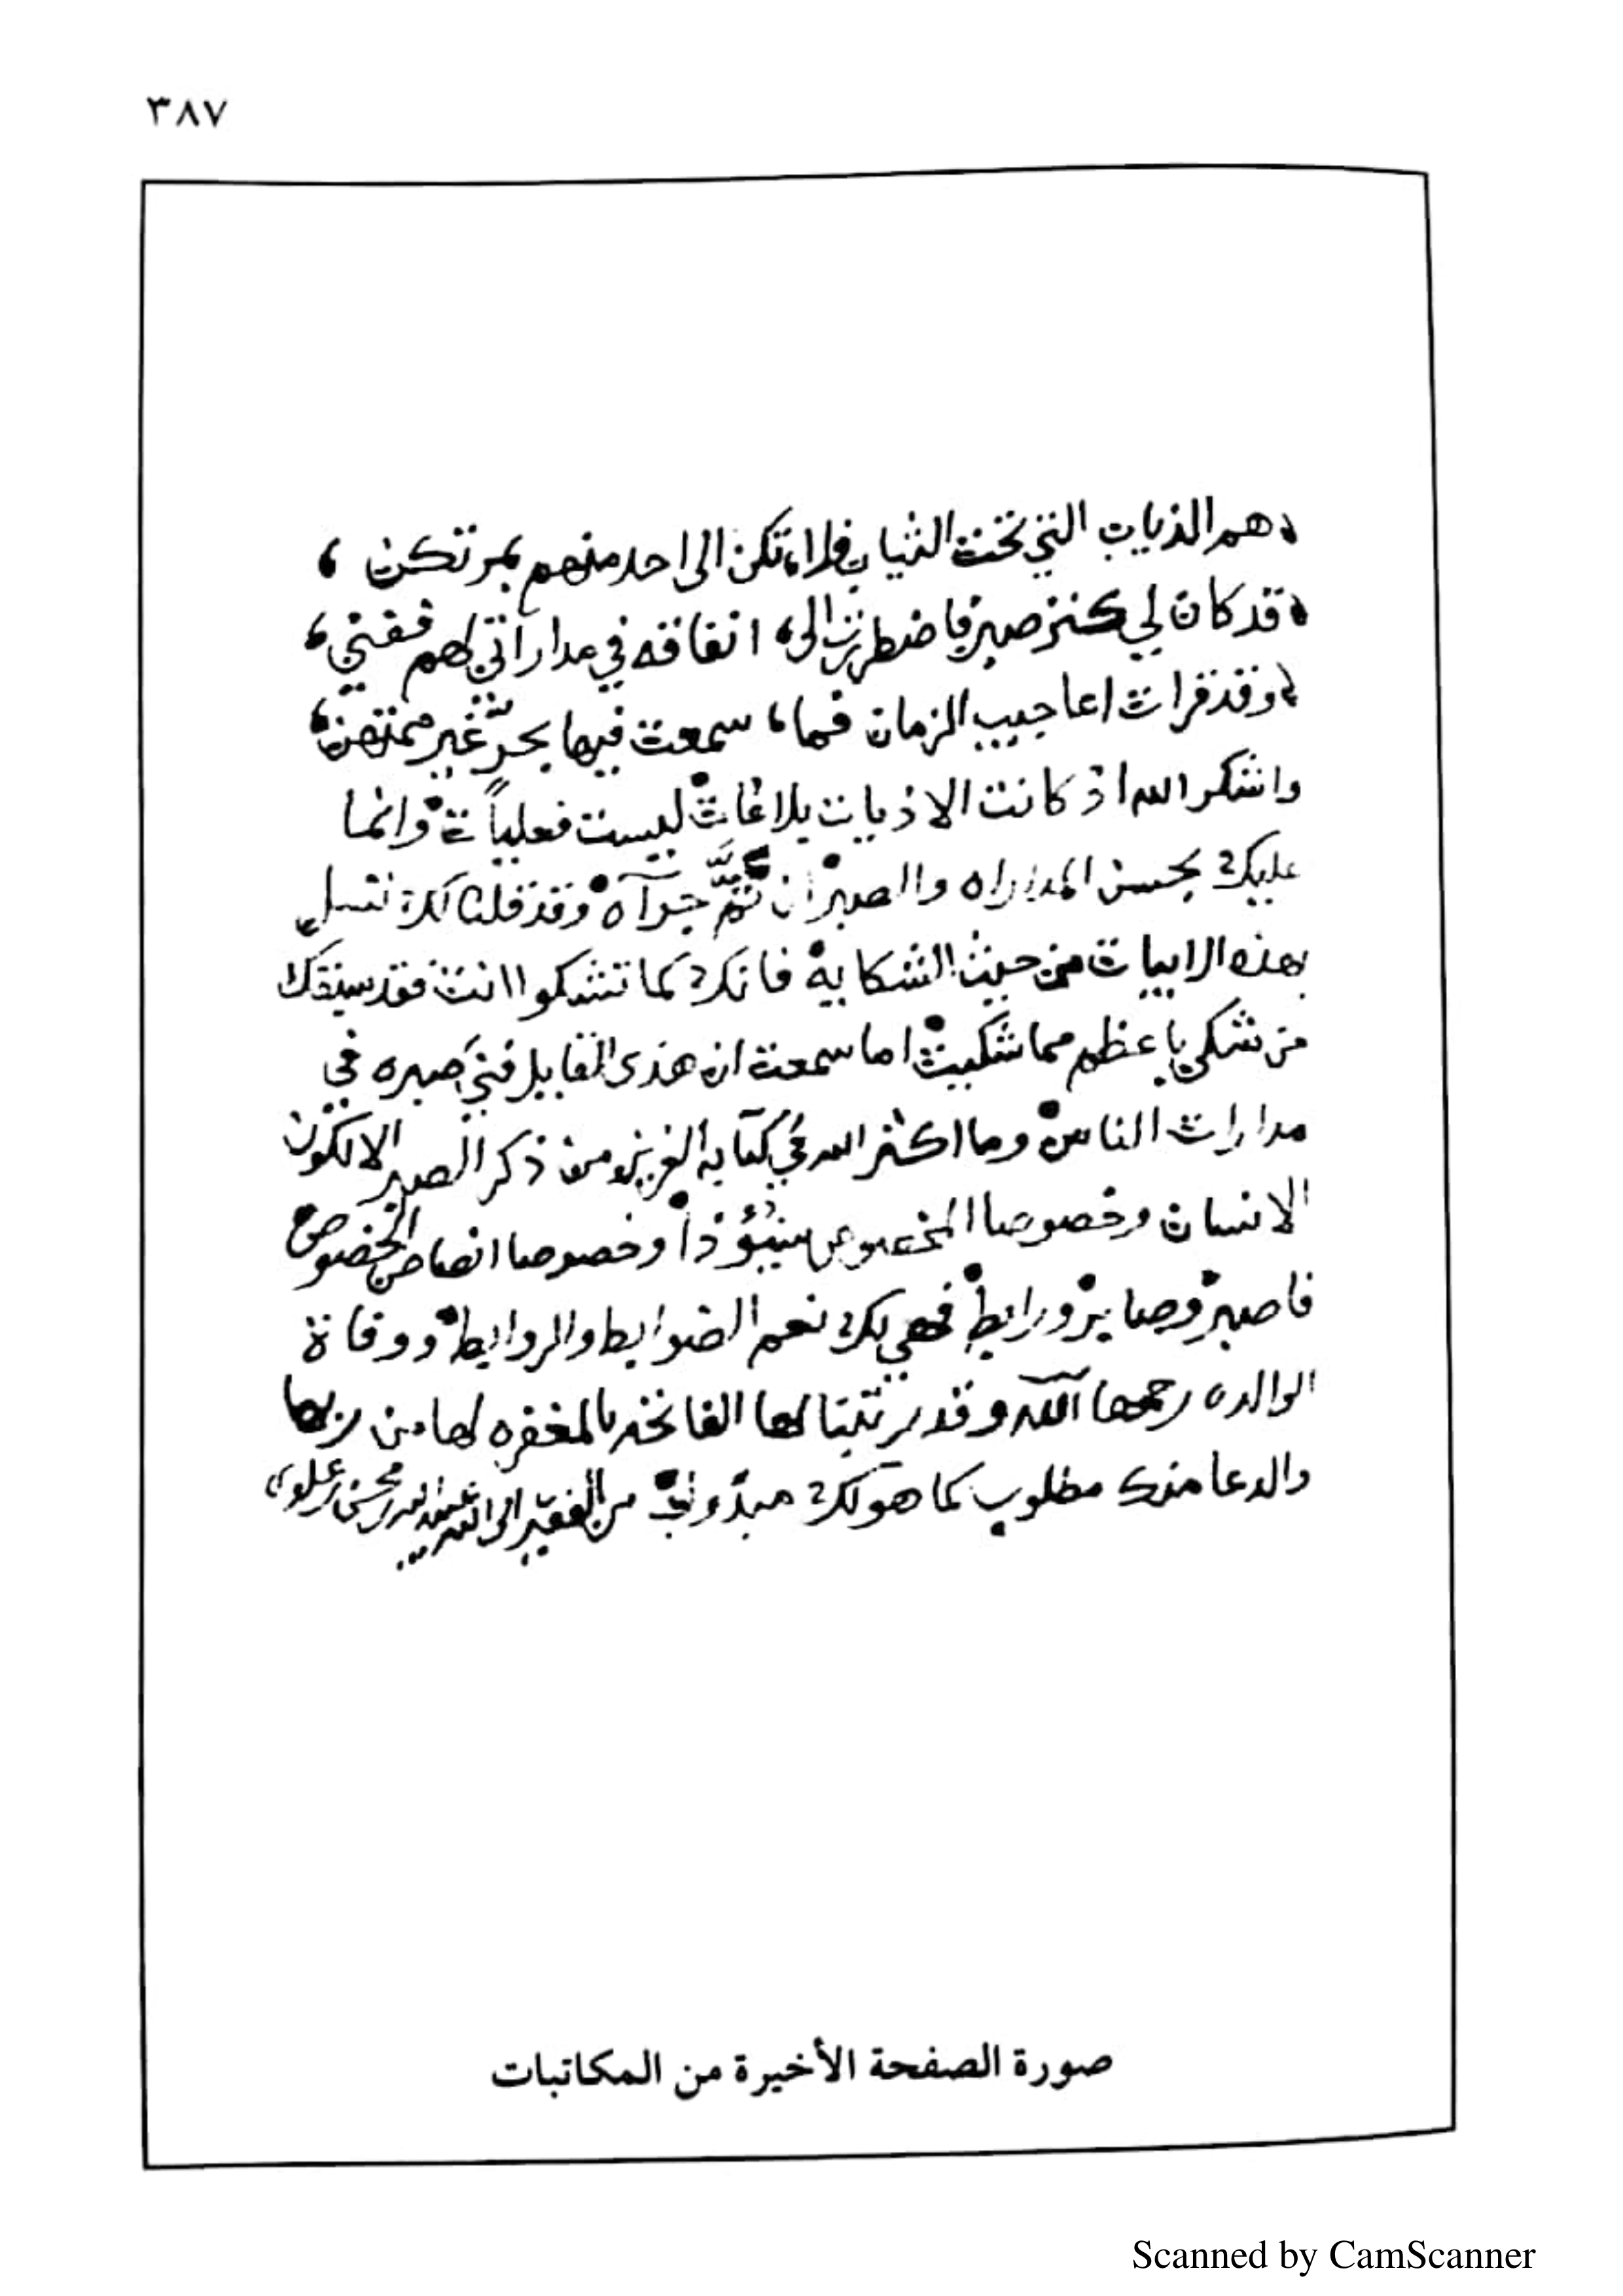 ٣٨٧
هم الذياب التي تحت الثياب فلا، تكن الى احد منهم بمرتكن ،
قد كان لي كنز صبر فاضطررت الى، انفاقه في مداراتي لهم ففني ،
وقد قرات اعاجيب الزمان فما، سمعت فيها بحر غير ممتهن،
واشكر الله اذ كانت الاذيات بلاغات ليست فعليات وانما
عليك بحسن المداراه والصبر ان ثم جرآه وقد قلنا لك تسل
بهذه الابيات من حيث الشكاية فانك كما تشكوا انت فقد سبقك
من شكى باعظم مما شكيت اما سمعت ان هذى القايل فني صبره في
مدارات الناس وما اكثر الله في كتابه العزيز من ذكر الصبر الا لكون
الانسان وخصوصا المخصوص وخصوصا الخصوص
فاصبر وصابر ورابط فهي لك نعم الضوابط والروابط ووفاة
الوالده رحمها الله وقد رتبنا لها الفاتحه بالمغفره لها من ربها
والدعا منك مطلوب كما هو لك مبذول من الفقير الى الله عبدالله بن محسن بن علوي
صورة الصفحة الأخيرة من المكاتبات
Scanned by CamScanner